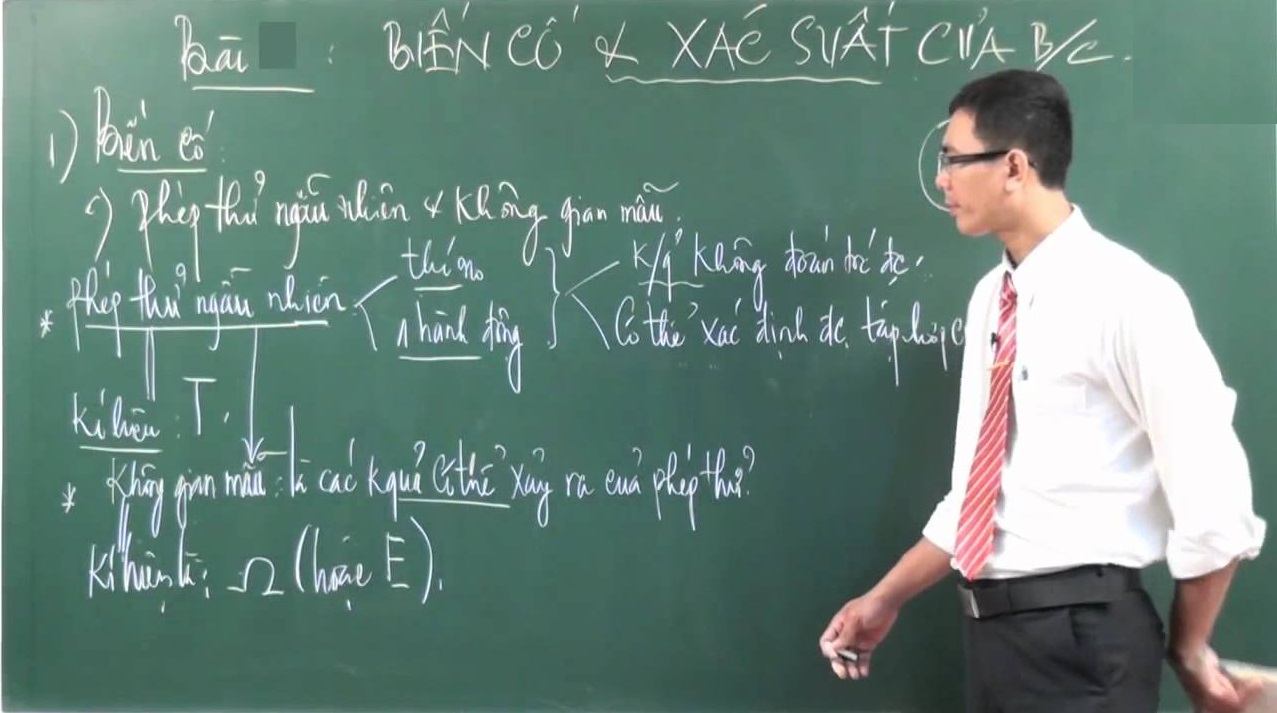 Bài : BIẾN CỐ & XÁC SUẤT CỦA B/C.
1) Biến cố:
) Phép thử ngẫu nhiên & Không gian mẫu.
* Phép thử ngẫu nhiên thí no } K/q' không đoán trc' đc.
1 hành động Có thể xác định đc tập hợp
Kí hiệu: T.
* Không gian mẫu: là các kquả có thể xảy ra của phép thử?
Kí hiệu là: Ω (hoặc E).